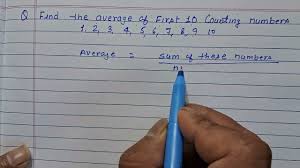 Q Find the average of First 10 Counting numbers
1, 2, 3, 4, 5, 6, 7, 8, 9 10
Average = Sum of these numbers